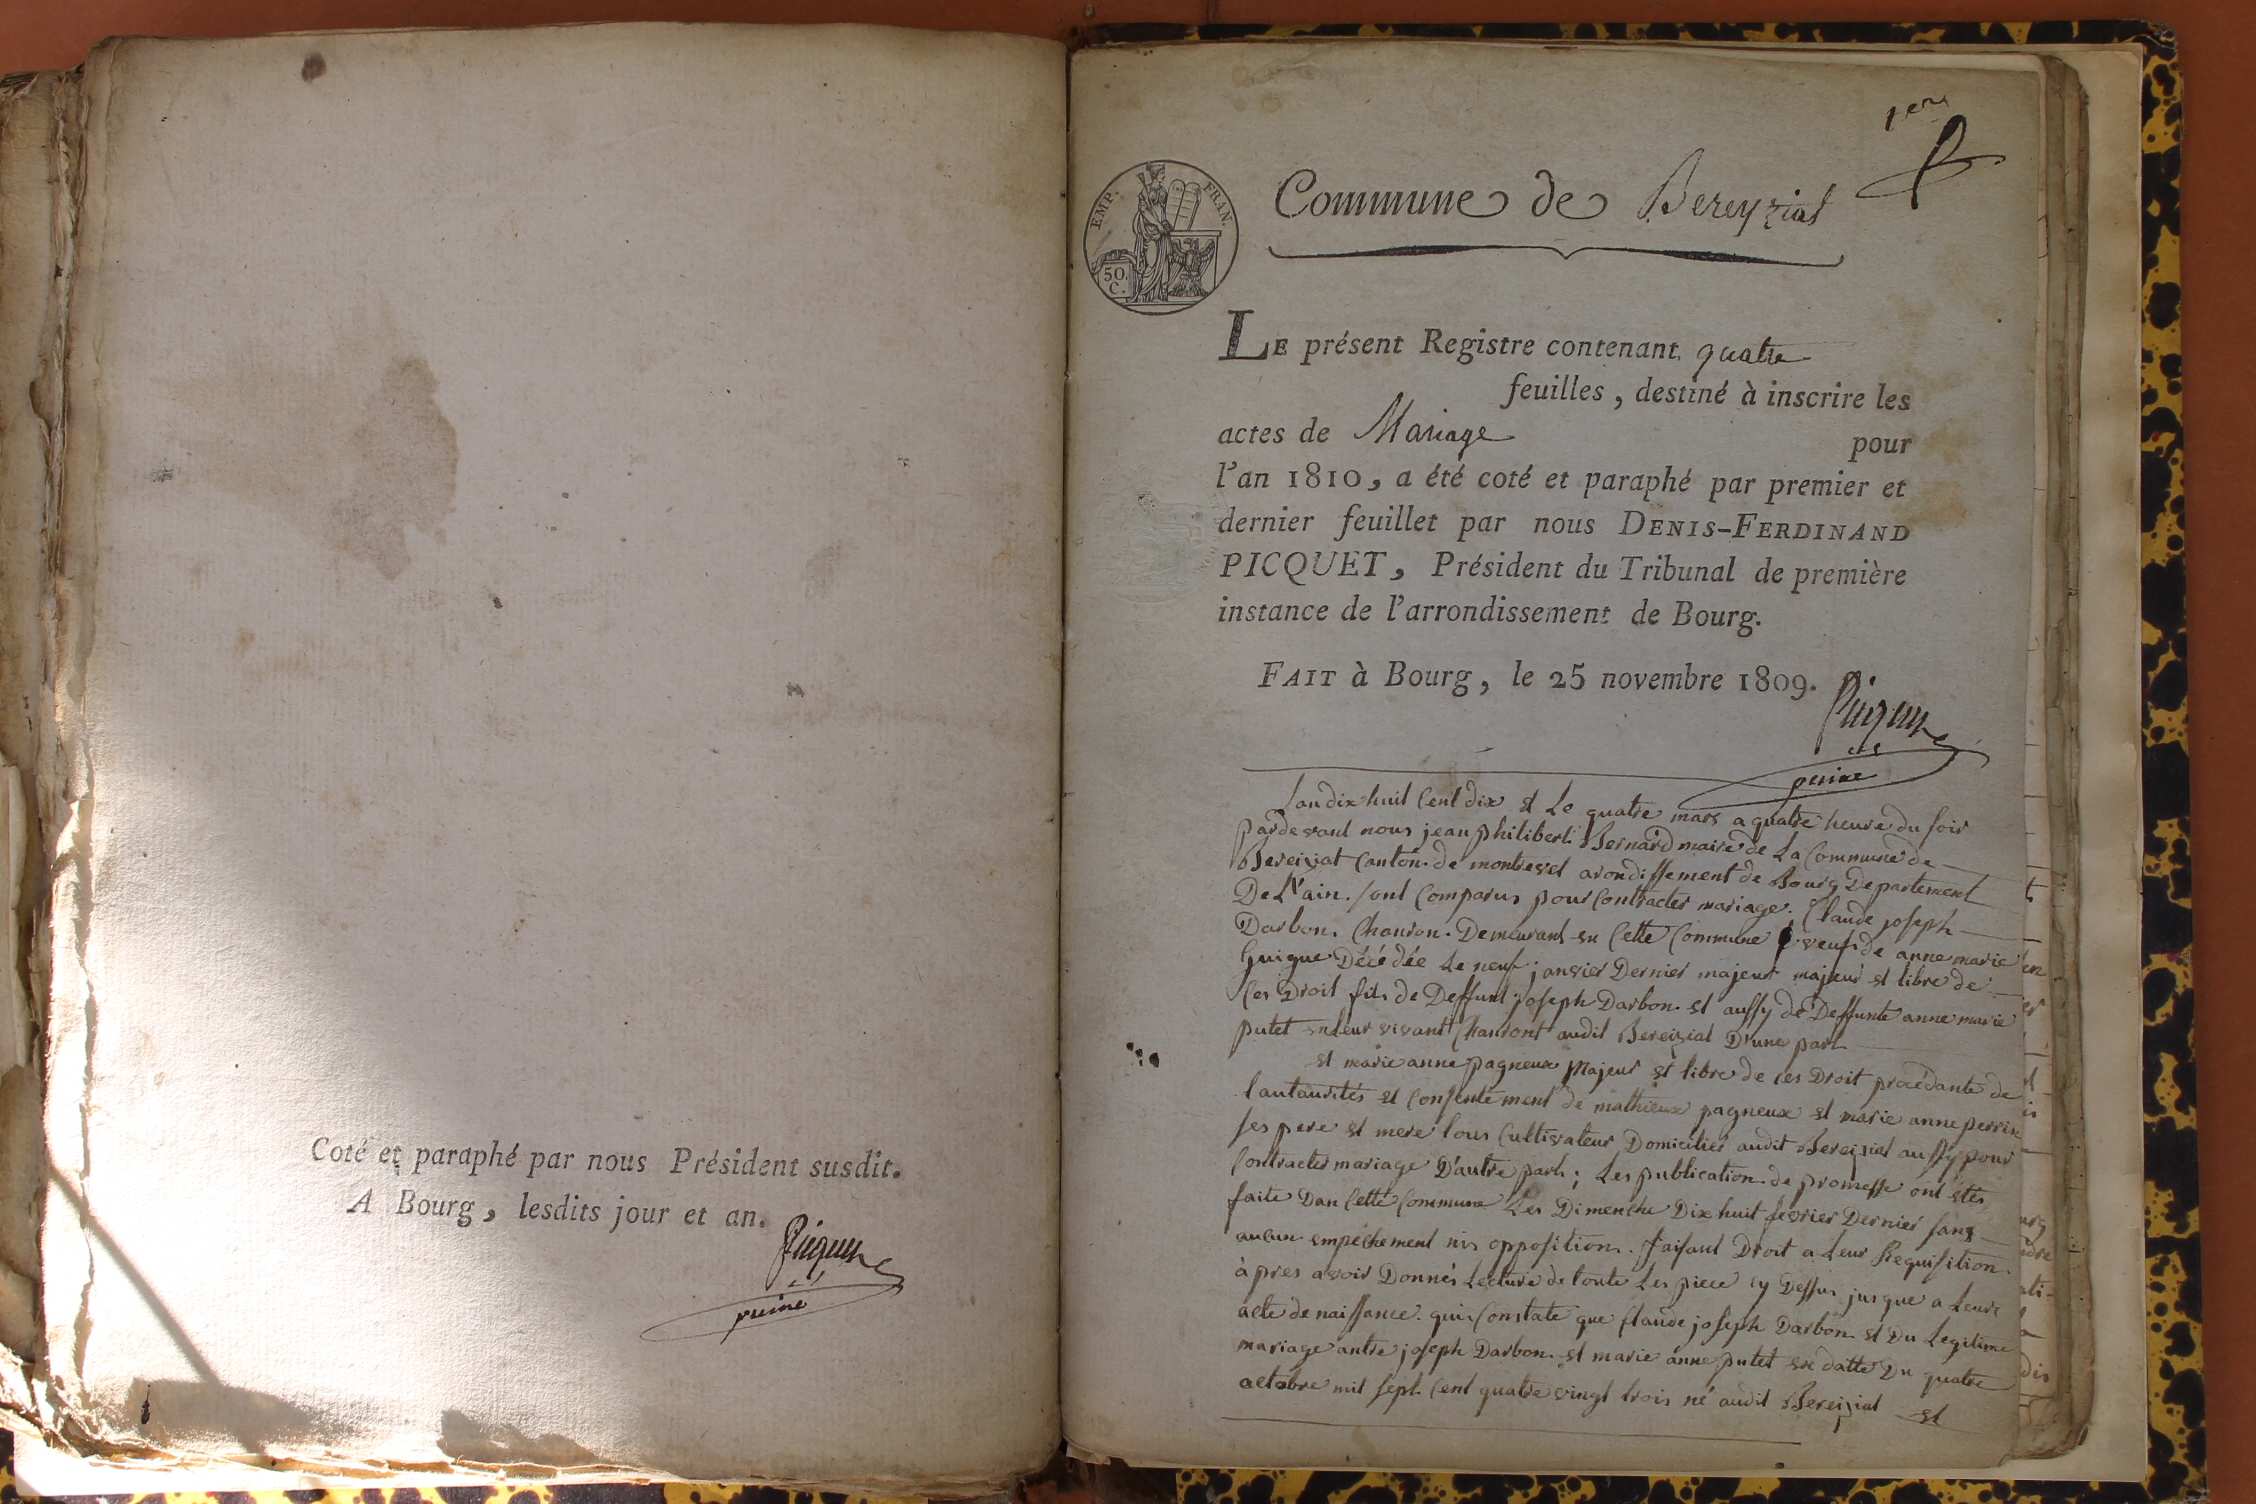 Coté et paraphé par nous Président susdit.
A Bourg, lesdits jour et an.
Picquet
1er
EMP. FRAN.
50 C.
Commune de Bereyziat
LE présent Registre contenant quatre
feuilles, destiné à inscrire les
actes de Mariage pour
l'an 1810, a été coté et paraphé par premier et
dernier feuillet par nous DENIS-FERDINAND
PICQUET, Président du Tribunal de première
instance de l'arrondissement de Bourg.
FAIT à Bourg, le 25 novembre 1809.
Picquet
Lan dix huit Cent dix et Le quatre mars a quatre heure du soir
pardevant nous jean philibert Bernard maire de La Commune de
Bereiziat Canton de montrevel arondissement de Bourg Departement
De L'ain. sont Comparus pour Contracter mariage. Claude joseph
Darbon. Demeurant en Cette Commune veuf de anne marie
Guigue Décédée Le neuf janvier Dernier majeur majeur et libre de
Ces Droit fils de Deffunt joseph Darbon et aussy de Deffunte anne marie
putet en Leur vivant audit Bereiziat D'une part
et marie anne pagneux Majeur et libre de ces Droit procédante de
Lautaurités et Consentement de mathieux pagneux et marie anne perrin
ses pere et mere tous Cultivateur Domiciliés audit Bereiziat aussy pour
Contracter mariage D'autre part; Les publication de promesse ont étés
faite Dan Cette Commune Les Dimenche Dix huit fevrier Dernier sans
aucun empéchement nis opposition. faisant Droit a Leur Requisition.
àpres avoir Donnés Lecture de toute Les piece cy Dessus jusque a Leure
acte de naissance. qui Constate que Claude joseph Darbon et Du Legitime
mariage antre joseph Darbon et marie anne putet en datte Du quatre
actobre mil sept Cent quatre vingt trois né audit Bereiziat et